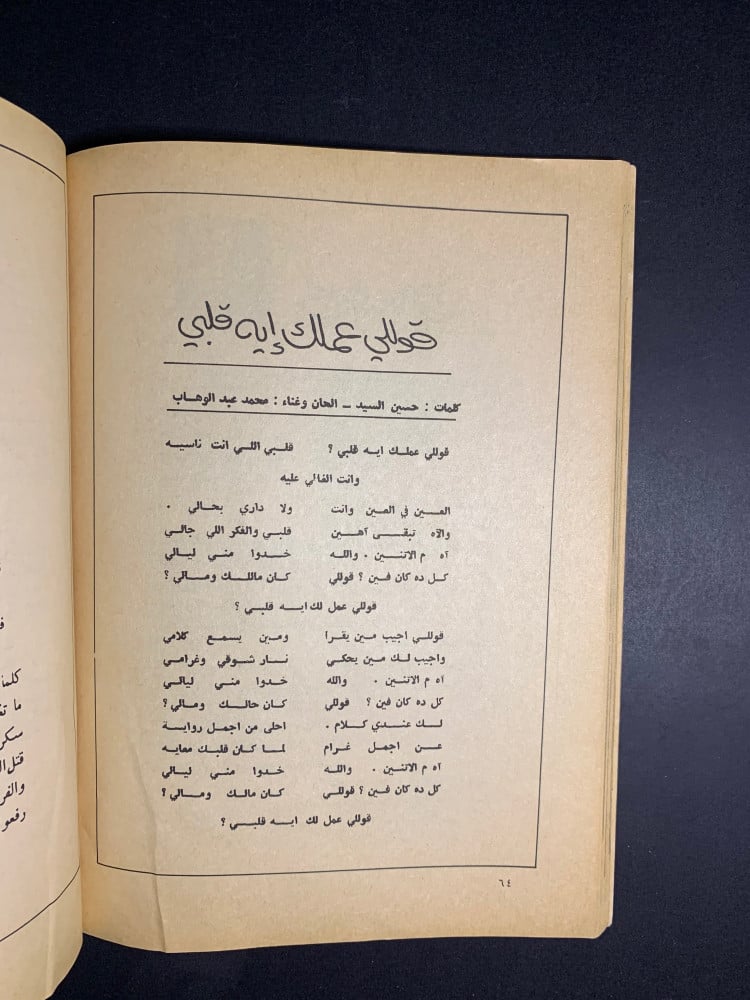 قوللي عملك إيه قلبي
كلمات : حسين السيد ــ الحان وغناء : محمد عبد الوهاب
قوللي عملك ايه قلبي ؟ قلبي اللي انت ناسيه
وانت الغالي عليه
العين في العين وانت ولا داري بحالي .
والآه تبقى آهين قلبي والفكر اللي جالي
آه م الاتنين . والله خدوا مني ليالي
كل ده كان فين ؟ قوللي كان ماللك ومالي ؟
قوللي عمل لك ايه قلبي ؟
قوللي اجيب مين يقرا ومين يسمع كلامي
واجيب لك مين يحكي نار شوقي وغرامي
آه م الاتنين . والله خدوا مني ليالي
كل ده كان فين ؟ قوللي كان حالك ومالي ؟
لك عندي كلام . احلى من اجمل رواية
عن اجمل غرام لما كان قلبك معايه
آه م الاتنين . والله خدوا مني ليالي
كل ده كان فين ؟ قوللي كان مالك ومالي ؟
قوللي عمل لك ايه قلبي ؟
٦٤
كلما
ما تف
سكر
قتل ال
والفر
رفعو